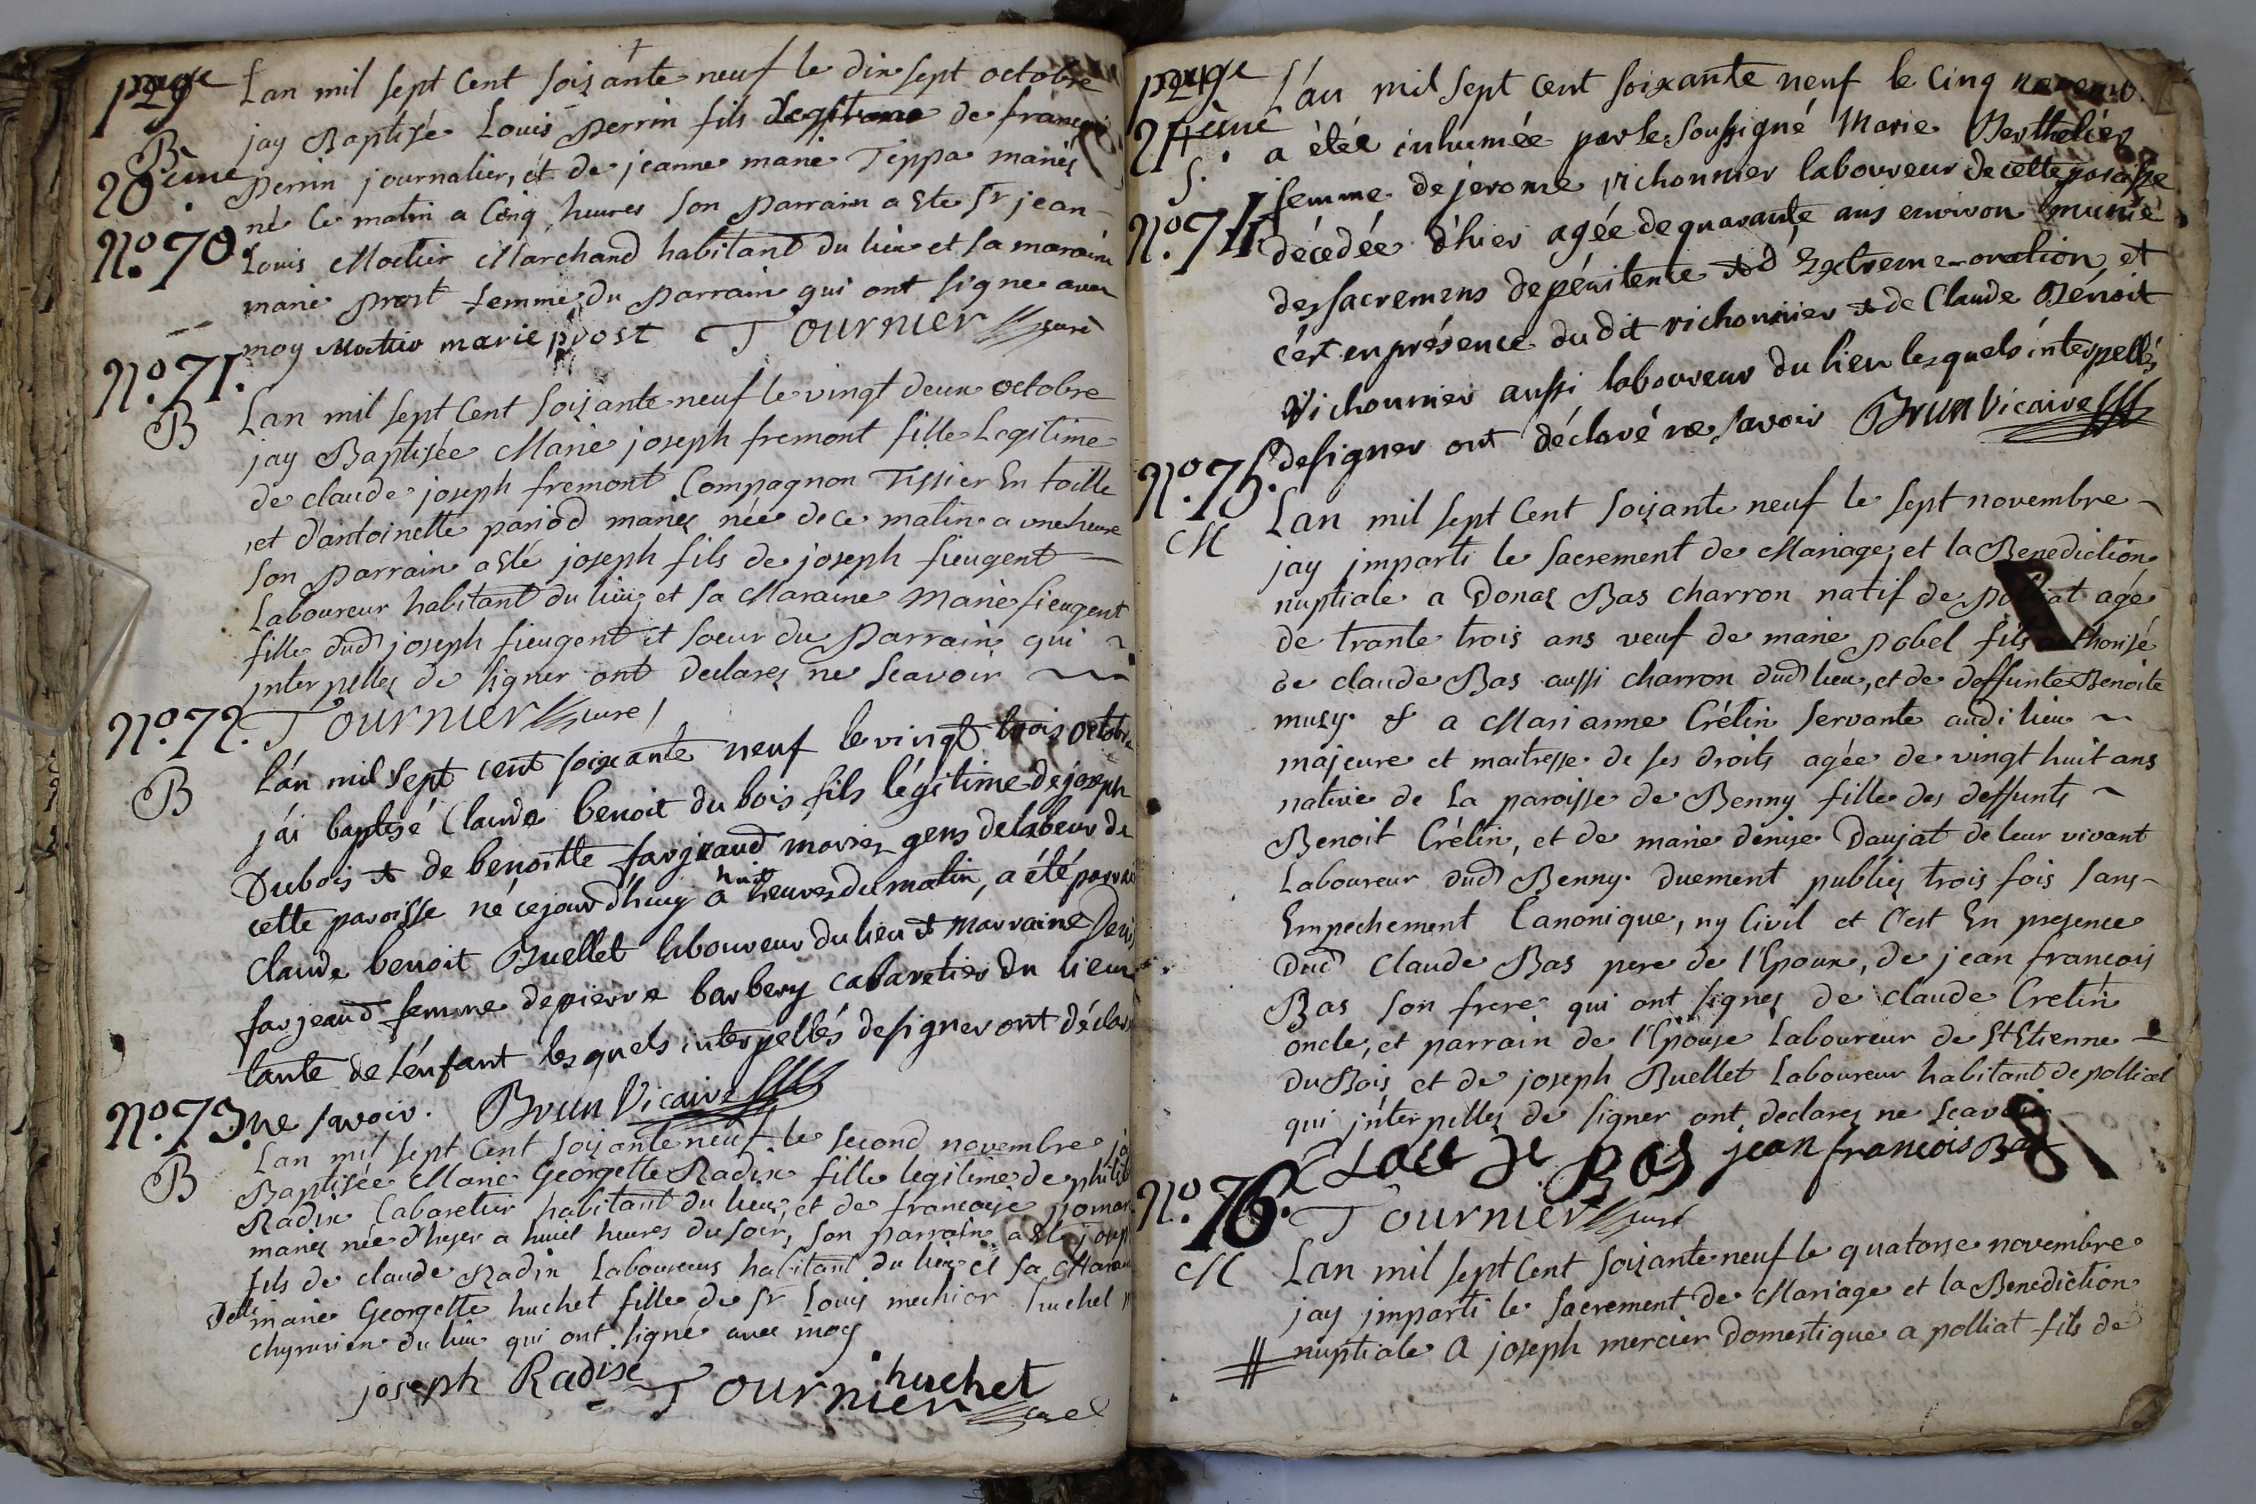 page
20eme.
Lan mil sept Cent soixante neuf le dix sept octobre
B
jay Baptisé Louis perrin fils Legitime de francois
perrin journalier, et de jeanne marie Tippa mariés
No. 70.
né ce matin a Cinq heures son parrain a Ete sr jean
Louis Mortier Marchand habitant du lieu et sa maraine
marie prost femme du parrain qui ont signe avec
moy Mortier marie prost Tournier curé
No. 71.
B
Lan mil sept Cent soixante neuf le vingt deux octobre
jay Baptisée Marie joseph fremont fille Legitime
de claude joseph fremont Compagnon Tissier En toille
et d'antoinette pariod mariez née de ce matin a une heure
son parrain a Eté joseph fils de joseph fieugent
Laboureur habitant du lieu, et sa Maraine Marie fieugent
fille dud joseph fieugent et soeur du parrain qui
interpellez de signer ont declarez ne scavoir
Tournier curé
No. 72.
B
l'án mil sept cent soixante neuf le vingt trois octobre
j'ái baptisé Claude benoit du bois fils légitime de joseph
Dubois & de benoitte farjeaud mariez gens de labeur de
cette paroisse né ce jourd'huy a huit heures du matin, a été parrain
Claude benoit Buellet laboureur du lieu & marraine Denise
farjeaud femme de pierre barbery cabaretier du lieu
tante de l'énfant lesquels interpellés de signer ont déclaré
ne savoir. Brun Vicaire
No. 73.
B
Lan mil sept Cent soixante neuf le second novembre ja
Baptisée Marie Georgette Radix fille legitime de philib
Radix Cabaretier habitant du lieu, et de francoise pomar
mariez née d'hyer a huict heures du soir, son parrain a Ete josep
fils de claude Radix Laboureur habitant du lieu et sa Marai
Delle marie Georgette huchet fille de sr Louis mechior huchet
chyrurien du lieu qui ont signé avec moy
joseph Radix huchet
Tournier curé
page
21eme.
S.
L'án mil sept cent soixante neuf le cinq novemb.
a étée inhumée par le soussigné Marie Berthelier
No. 74.
femme de jerome vichonnier laboureur de cette paroisse
décedée d'hier agée de quarante ans environ munie
des sacremens de pénitente & d'Extreme-onction, et
c'ést en présence du dit vichonnier & de Claude Benoit
Vichonnier aussi laboureur du lieu lesquels interpellés
de signer ont déclaré ne savoir Brun Vicaire
No. 75.
M
Lan mil sept Cent soixante neuf le sept novembre
jay imparti le sacrement de Mariage, et la Benediction
nuptiale a Donaz Bas charron natif de polliat agé
de trante trois ans veuf de marie pobel fils authorisé
de claude Bas aussi charron dud lieu, et de deffunte Benoite
muzy. & a Marianne Crétin servante audi lieu
majeure et maitresse de ses droits agée de vingt huit ans
native de La paroisse de Benny fille des deffunts
Benoit Crétin, et de marie denise Daujat de leur vivant
Laboureur dud Benny. duement publiez trois fois sans
Empechement Canonique, ny Civil et C'est En presence
dud Claude Bas pere de l'Epoux, de jean francois
Bas son frere qui ont signez de claude Cretin
oncle, et parrain de l'Epouse Laboureur de St Etienne
du Bois et de joseph Buellet Laboureur habitant de polliat
qui interpellez de signer ont declarez ne scavoir
Bas jean francois Bas
Tournier curé
No. 76.
M
Lan mil sept Cent soixante neuf le quatorse novembre
jay imparti le sacrement de Mariage et la Benediction
nuptiale a joseph mercier Domestique a polliat fils de